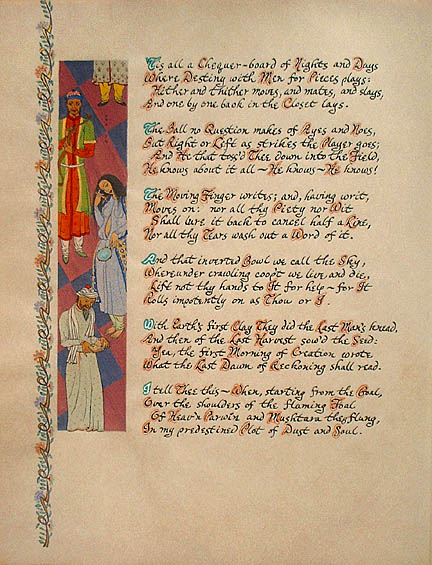 'Tis all a Chequer-board of Nights and Days
Where Destiny with Men for Pieces plays:
Hither and thither moves, and mates, and slays,
And one by one back in the Closet lays.
The Ball no Question makes of Ayes and Noes,
But Right or Left as strikes the Player goes;
And He that toss'd Thee down into the Field,
He knows about it all ~ He knows ~ He knows!
The Moving Finger writes; and, having writ,
Moves on: nor all thy Piety nor Wit
Shall lure it back to cancel half a Line,
Nor all thy Tears wash out a Word of it.
And that inverted Bowl we call the Sky,
Whereunder crawling coop't we live and die,
Lift not thy hands to It for help ~ for It
Rolls impotently on as Thou or I.
With Earth's first Clay They did the Last Man's knead,
And then of the Last Harvest sow'd the Seed:
Yea, the first Morning of Creation wrote
What the Last Dawn of Reckoning shall read.
I tell Thee this ~ When, starting from the Goal,
Over the shoulders of the flaming Foal
Of Heav'n Parwin and Mushtara they flung,
In my predestined Plot of Dust and Soul.